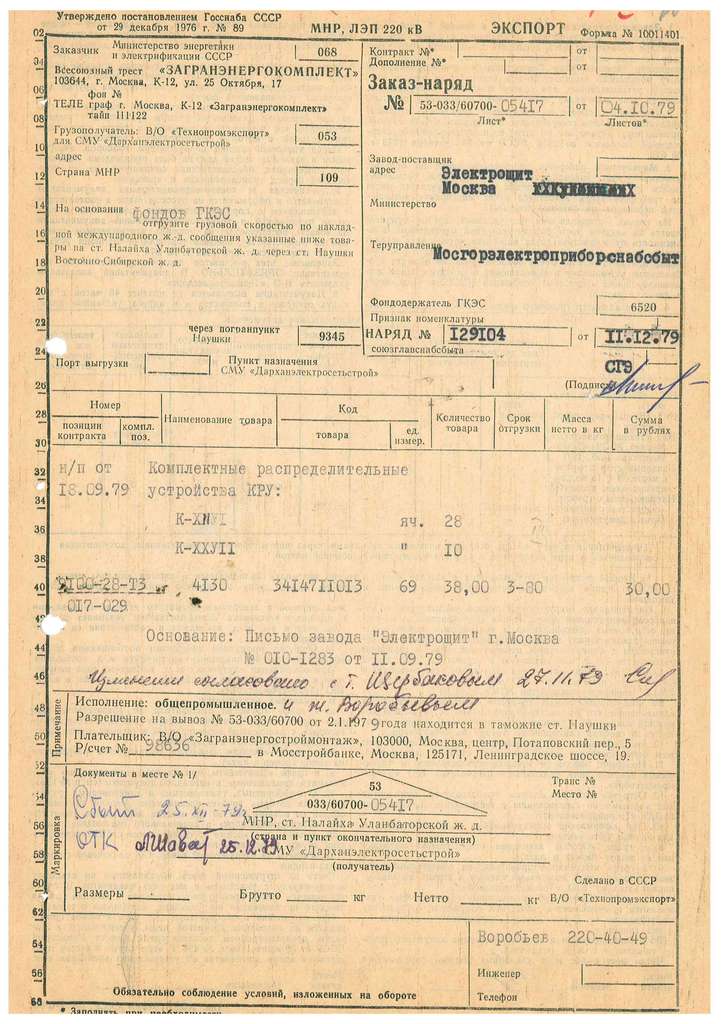 Утверждено постановлением Госснаба СССР
от 29 декабря 1976 г. № 89
МНР, ЛЭП 220 кВ
ЭКСПОРТ
Форма № 10011401
Заказчик Министерство энергетики
и электрификации СССР
068
Всесоюзный трест «ЗАГРАНЭНЕРГОКОМПЛЕКТ»
103644, г. Москва, К-12, ул. 25 Октября, 17
фон №
ТЕЛЕ граф г. Москва, К-12 «Загранэнергокомплект»
тайп 111122
Грузополучатель: В/О «Технопромэкспорт»
для СМУ «Дарханэлектросетьстрой»
053
адрес
Страна МНР
109
На основании фондов ГКЭС
отгрузите грузовой скоростью по наклад-
ной международного ж.-д. сообщения указанные ниже това-
ры на ст. Налайха Уланбаторской ж. д. через ст. Наушки
Восточно-Сибирской ж. д.
через погранпункт
Наушки
9345
Порт выгрузки
Пункт назначения
СМУ «Дарханэлектросетьстрой»
Контракт №* от
Дополнение №* от
Заказ-наряд
№ 53-033/60700-05417 от 04.10.79
Лист* Листов*
Завод-поставщик
адрес Электрощит
Москва
Министерство
Теруправление
Мосгорэлектроприборснабсбыт
Фондодержатель ГКЭС
6520
Признак номенклатуры
НАРЯД № 129104 от 11.12.79
союзглавснабсбыта
СГЭ
(Подпись)
Номер
позиции контракта
компл. поз.
Наименование товара
Код
товара
ед. измер.
Количество товара
Срок отгрузки
Масса нетто в кг
Сумма в рублях
н/п от Комплектные распределительные
18.09.79 устройства КРУ:
яч. 28
К-ХХУII " 10
4130 3414711013 69 38,00 3-80 30,00
017-029
Основание: Письмо завода "Электрощит" г.Москва
№ 010-1283 от 11.09.79
Изменения согласовано с т. Щербаковым 27.11.79
и т. Воробьевым
Примечание
Исполнение: общепромышленное.
Разрешение на вывоз № 53-033/60700 от 2.1.1979 года находится в таможне ст. Наушки
Плательщик: В/О «Загранэнергостроймонтаж», 103000, Москва, центр, Потаповский пер., 5
Р/счет № 98636 в Мосстройбанке, Москва, 125171, Ленинградское шоссе, 19.
Маркировка
Документы в месте № 1/
53
033/60700-05417
Транс №
Место №
Сбыт 25.XII-79г
МНР, ст. Налайха Уланбаторской ж. д.
(страна и пункт окончательного назначения)
ОТК 25.12.79
СМУ «Дарханэлектросетьстрой»
(получатель)
Размеры Брутто кг Нетто кг
Сделано в СССР
В/О «Технопромэкспорт»
Воробьев 220-40-49
Инженер
Телефон
Обязательно соблюдение условий, изложенных на обороте
* Заполнять при необходимости
02
04
06
08
10
12
14
16
18
20
22
24
26
28
30
32
34
36
38
40
42
44
46
48
50
52
54
56
58
60
62